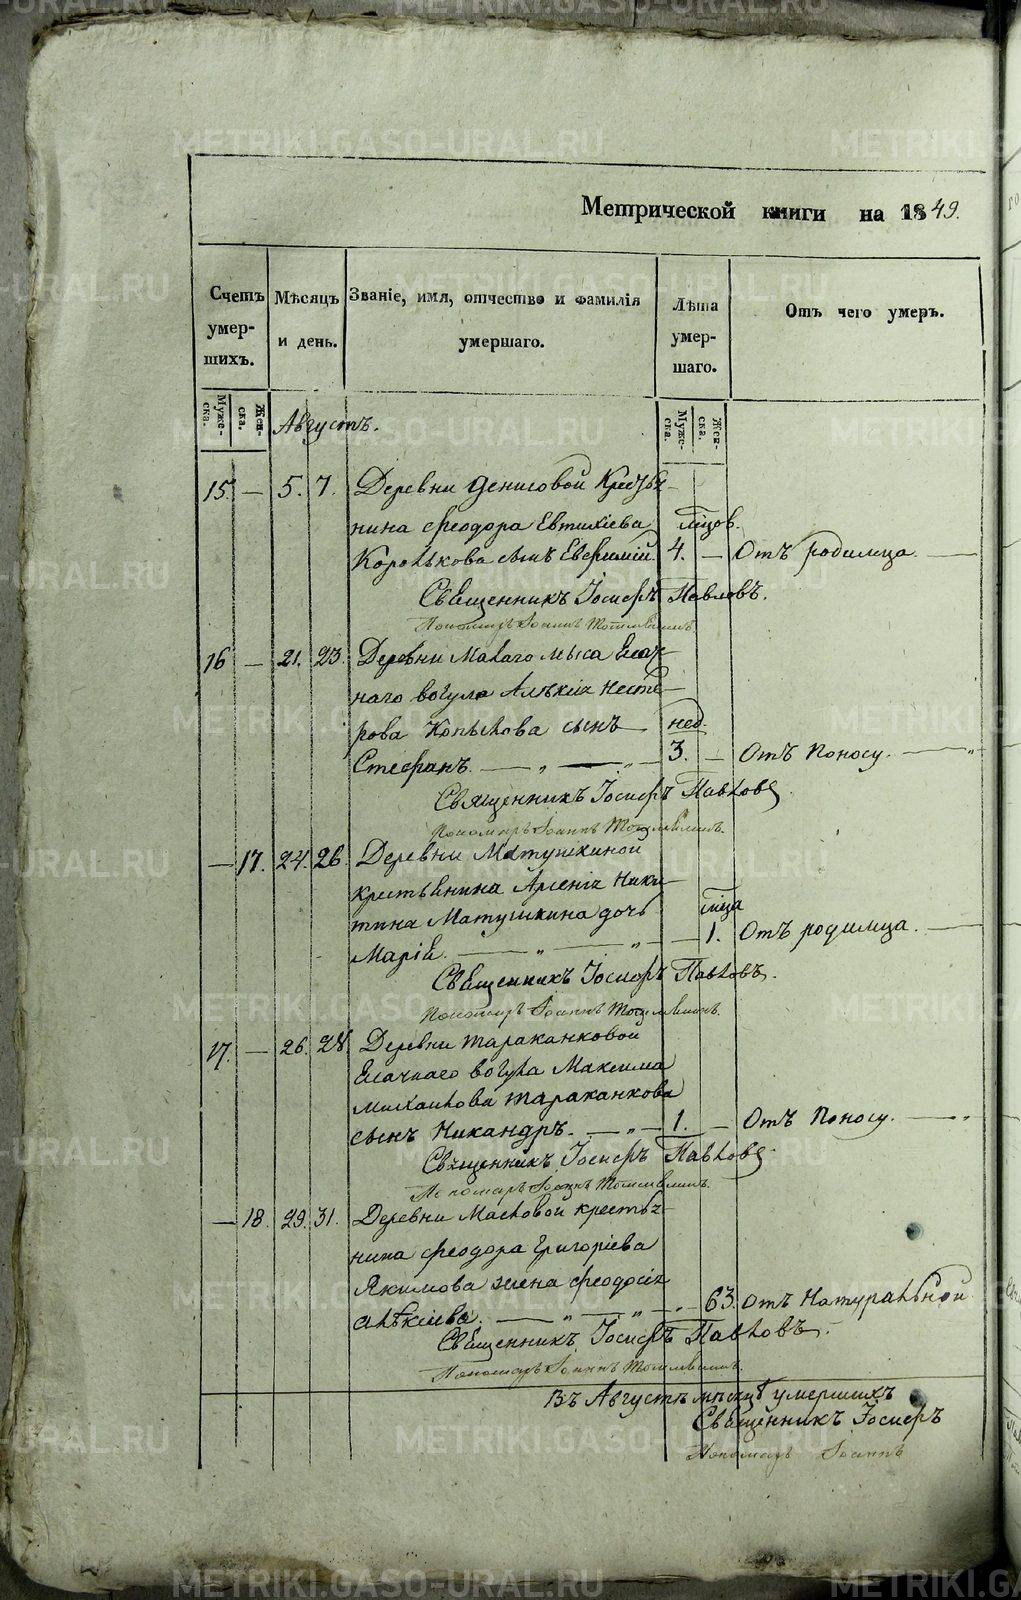 Метрической книги на 1849.
Счетъ умер-шихъ.
Мѣсяцъ и день.
Званіе, имя, отчество и фамилія умершаго.
Лѣта умер-шаго.
Отъ чего умеръ.
Муже-ска.
Жен-ска.
Муже-ска.
Жен-ска.
Августъ.
15. — 5. 7. Деревни Денисовой Крестья-
нина Феодора Евтихіева
Королькова сынъ Евфимій 4. — Отъ родимца.
Священникъ Іосифъ Павловъ.
Пономарь Іоаннъ
16 — 21. 23. Деревни Малаго мыса Ясач-
наго вогула Алѣксія Несте-
рова Копылова сынъ нед.
Стефанъ. 3. — Отъ поносу.
Священникъ Іосифъ Павловъ
Пономарь Іоаннъ
— 17. 24. 26. Деревни Матушкиной
крестьянина Арсенія Ники-
тина Матушкина дочь
Марія. — 1. Отъ родимца.
Священникъ Іосифъ Павловъ.
Пономарь Іоаннъ
17. — 26. 28. Деревни Тараканковой
Ясачнаго вогула Максима
Михаилова Тараканкова
сынъ Никандръ. 1. — Отъ поносу.
Священникъ Іосифъ Павловъ
Пономарь Іоаннъ
— 18. 29. 31. Деревни Масловой крестья-
нина Феодора Григоріева
Якимова жена Феодосія
Алѣксіева. 63. Отъ Натуральной
Священникъ Іосифъ Павловъ.
Пономарь Іоаннъ
Въ Августѣ мѣсяцѣ умершихъ
Священникъ Іосифъ
Пономарь Іоаннъ
METRIKI.GASO-URAL.RU